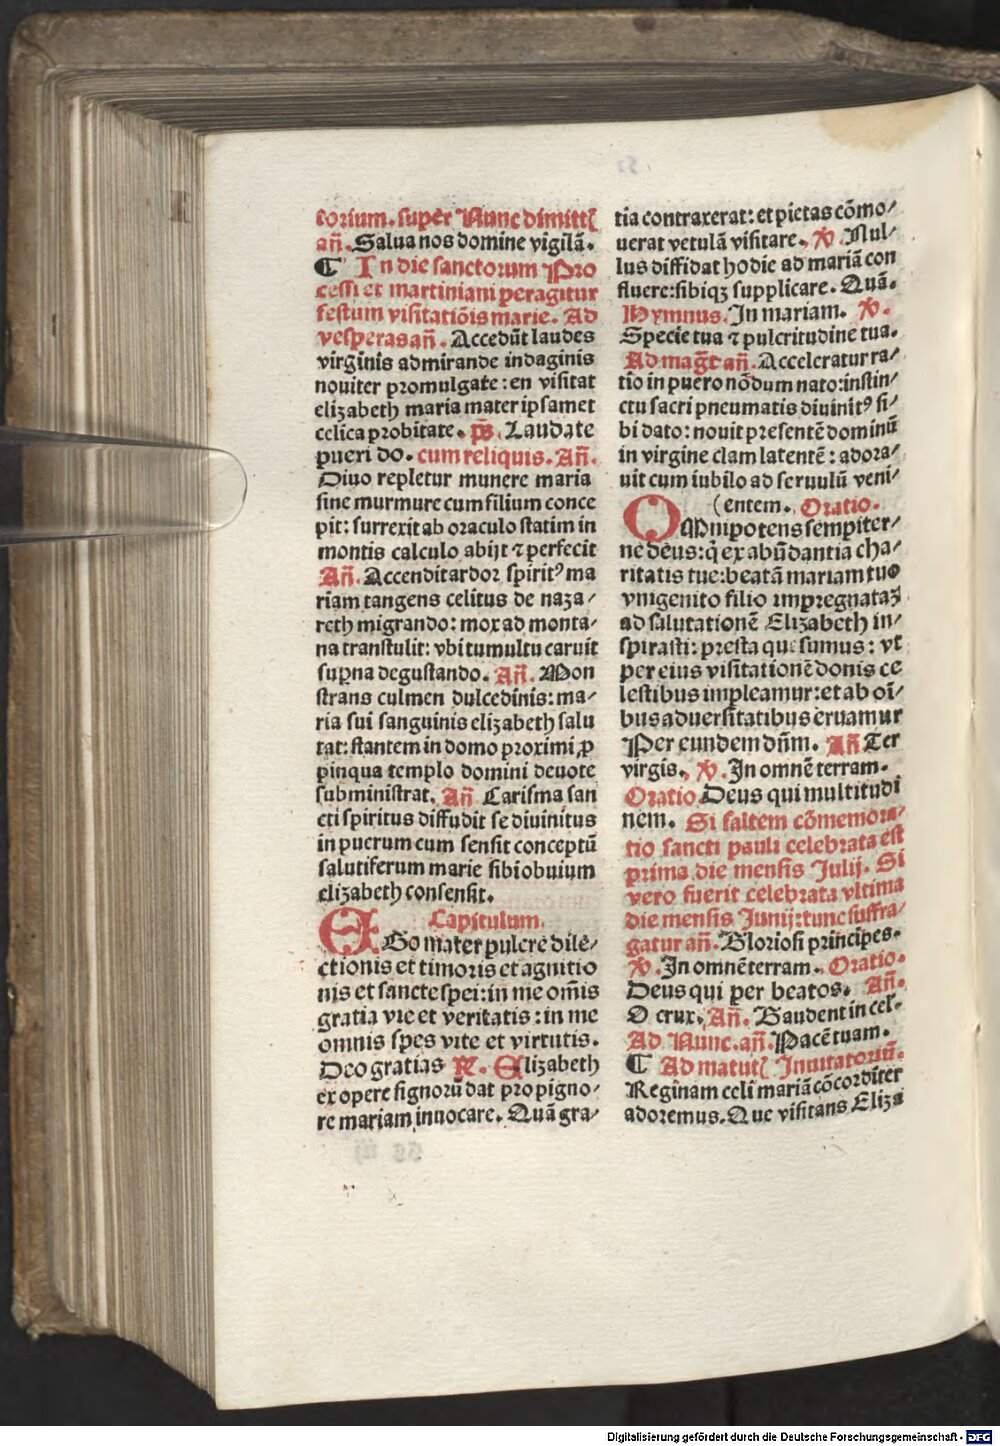 torium. super Nunc dimittꝭ
an̄. Salua nos domine vigilā.
¶ In die sanctorum Pro
cessi et martiniani peragitur
festum visitatiōis marie. Ad
vesperas an̄. Accedūt laudes
virginis admirande indaginis
nouiter promulgate: en visitat
elizabeth maria mater ipsamet
celica probitate. ps̄. Laudate
pueri do. cum reliquis. An̄.
Diuo repletur munere maria
sine murmure cum filium conce
pit: surrexit ab oraculo statim in
montis calculo abijt ⁊ perfecit
An̄. Accendit ardor spiritꝰ ma
riam tangens celitus de naza/
reth migrando: mox ad monta/
na transtulit: vbi tumultu caruit
supna degustando. An̄. Mon
strans culmen dulcedinis: ma/
ria sui sanguinis elizabeth salu
tat: stantem in domo proximi ꝓ
pinqua templo domini deuote
subministrat. An̄ Carisma san
cti spiritus diffudit se diuinitus
in puerum cum sensit conceptū
salutiferum marie sibi obuium
elizabeth consensit.
Capitulum.
EGo mater pulcre dile/
ctionis et timoris et agnitio
nis et sancte spei: in me om̄is
gratia vie et veritatis: in me
omnis spes vite et virtutis.
Deo gratias ℟. Elizabeth
ex opere signorū dat pro pigno/
re mariam inuocare. Quā gra/
tia contraxerat: et pietas cōmo/
uerat vetulā visitare. ℣. Nul/
lus diffidat hodie ad mariā con
fluere: sibiqꝫ supplicare. Quā.
Hymnus. In mariam. ℣.
Specie tua ⁊ pulcritudine tua.
Ad maḡt an̄. Acceleratur ra/
tio in puero nōdum nato: instin/
ctu sacri pneumatis diuinitꝰ si/
bi dato: nouit presentē dominū
in virgine clam latentē: adora/
uit cum iubilo ad seruulū veni/
(entem. Oratio.
OMnipotens sempiter/
ne deus: q̄ ex abūdantia cha/
ritatis tue: beatā mariam tuo
vnigenito filio impregnataꝫ
ad salutationē Elizabeth in/
spirasti: presta quesumus: vt
per eius visitationē donis ce
lestibus impleamur: et ab oī/
bus aduersitatibus eruamur
Per eundem dn̄m. An̄ Ter
virgis. ℣. In omnē terram.
Oratio Deus qui multitudi
nem. Si saltem cōmemora/
tio sancti pauli celebrata est
prima die mensis Julij. Si
vero fuerit celebrata vltima
die mensis Junij: tunc suffra/
gatur an̄. Gloriosi principes.
℣. In omnē terram. Oratio.
Deus qui per beatos. An̄.
O crux. An̄. Gaudent in cel.
Ad Nunc. an̄. Pacē tuam.
¶ Ad matutꝭ Inuitatoriū.
Reginam celi mariā cōcorditer
adoremus. Que visitans Eliza
Digitalisierung gefördert durch die Deutsche Forschungsgemeinschaft - DFG